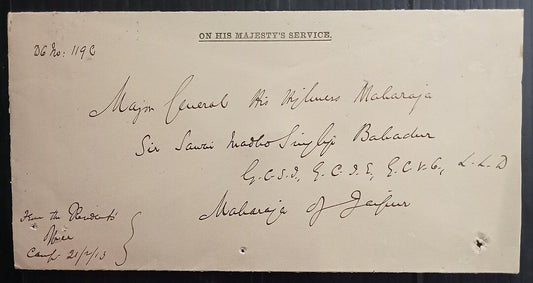 ON HIS MAJESTY'S SERVICE.
DO No: 119C
Major General His Highness Maharaja
Sir Sawai Madho Singhji Bahadur
G.C.S.I, G.C.I.E, G.C.V.O, L.L.D
Maharaja of Jaipur
From the Resident's
Office
Camp 21/2/13